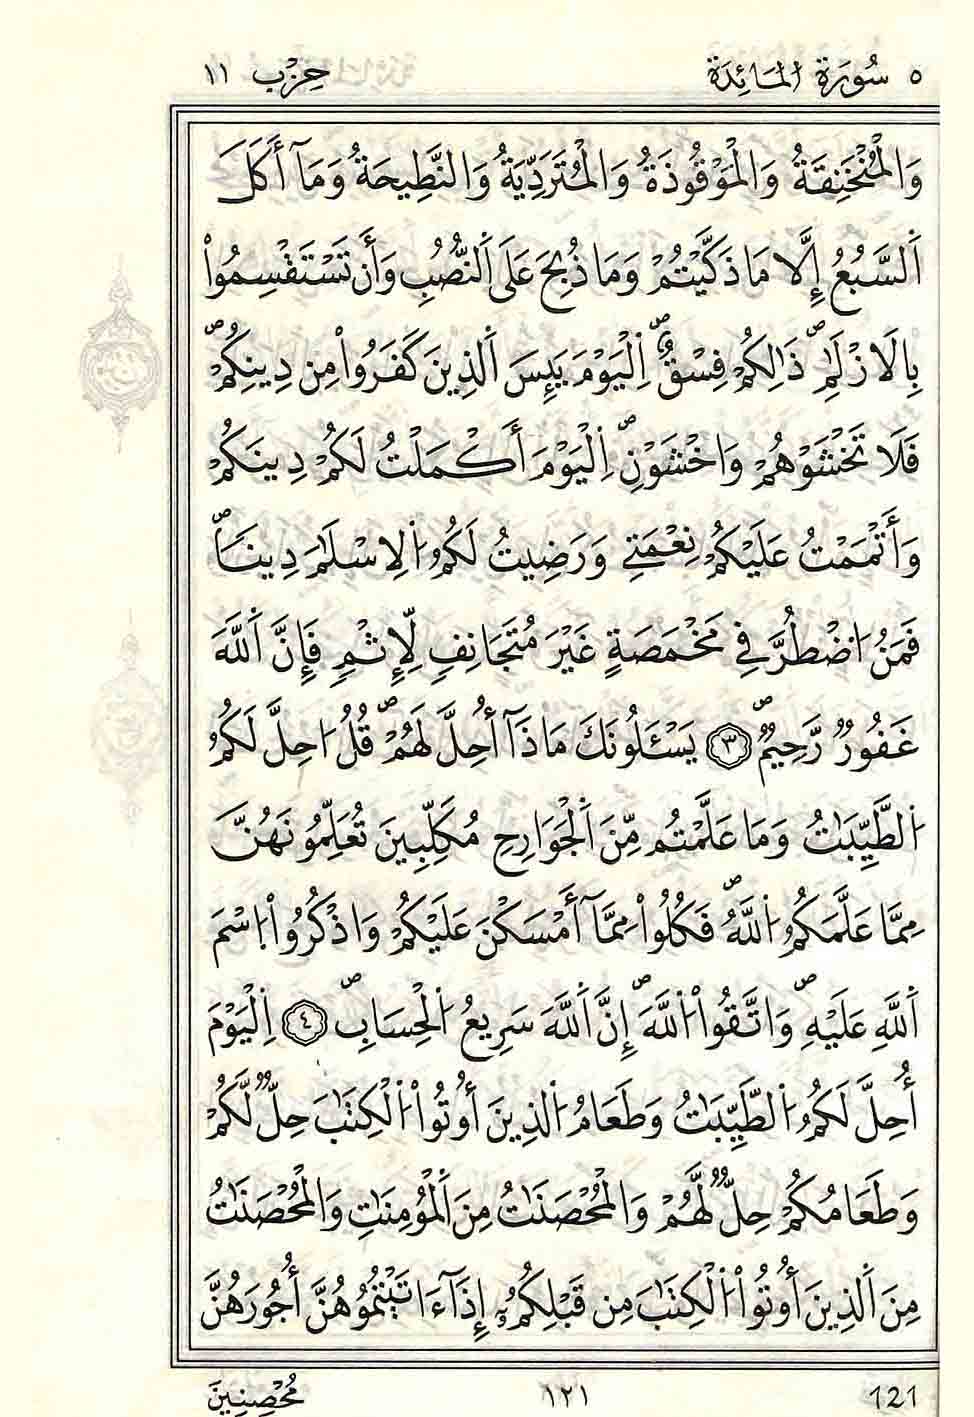 ٥ سُورَة المَائِدَة حِزْب ١١
وَالْمُنْخَنِقَةُ وَالْمَوْقُوذَةُ وَالْمُتَرَدِّيَةُ وَالنَّطِيحَةُ وَمَآ أَكَلَ
اَلسَّبُعُ إِلَّا مَا ذَكَّيْتُمْ وَمَا ذُبِحَ عَلَى اَلنُّصُبِ وَأَن تَسْتَقْسِمُواْ
بِالَازْلَٰمِۖ ذَٰلِكُمْ فِسْقٌۖ اِلْيَوْمَ يَئِسَ اَلذِينَ كَفَرُواْ مِن دِينِكُمْۖ
فَلَا تَخْشَوْهُمْ وَاخْشَوْنِۖ اِلْيَوْمَ أَكْمَلْتُ لَكُمْ دِينَكُمْ
وَأَتْمَمْتُ عَلَيْكُمْ نِعْمَتِے وَرَضِيتُ لَكُمُ اُلِاسْلَٰمَ دِيناٗۖ
فَمَنُ اُضْطُرَّ فِے مَخْمَصَةٍ غَيْرَ مُتَجَانِفٖ لِّإِثْمٖ فَإِنَّ اَللَّهَ
غَفُورٞ رَّحِيمٞۖ ٣ يَسْـَٔلُونَكَ مَاذَآ أُحِلَّ لَهُمْۖ قُلُ احِلَّ لَكُمُ
اُلطَّيِّبَٰتُ وَمَا عَلَّمْتُم مِّنَ اَلْجَوَارِحِ مُكَلِّبِينَ تُعَلِّمُونَهُنَّ
مِمَّا عَلَّمَكُمُ اُللَّهُۖ فَكُلُواْ مِمَّآ أَمْسَكْنَ عَلَيْكُمْ وَاذْكُرُواْ اُسْمَ
اَللَّهِ عَلَيْهِۖ وَاتَّقُواْ اُللَّهَۖ إِنَّ اَللَّهَ سَرِيعُ اُلْحِسَابِۖ ٤ اِلْيَوْمَ
أُحِلَّ لَكُمُ اُلطَّيِّبَٰتُ وَطَعَامُ اُلذِينَ أُوتُواْ اُلْكِتَٰبَ حِلّٞ لَّكُمْ
وَطَعَامُكُمْ حِلّٞ لَّهُمْ وَالْمُحْصَنَٰتُ مِنَ اَلْمُؤْمِنَٰتِ وَالْمُحْصَنَٰتُ
مِنَ اَلذِينَ أُوتُواْ اُلْكِتَٰبَ مِن قَبْلِكُمُۥٓ إِذَآ ءَاتَيْتُمُوهُنَّ أُجُورَهُنَّ
121 ١٢١ مُحْصِنِينَ